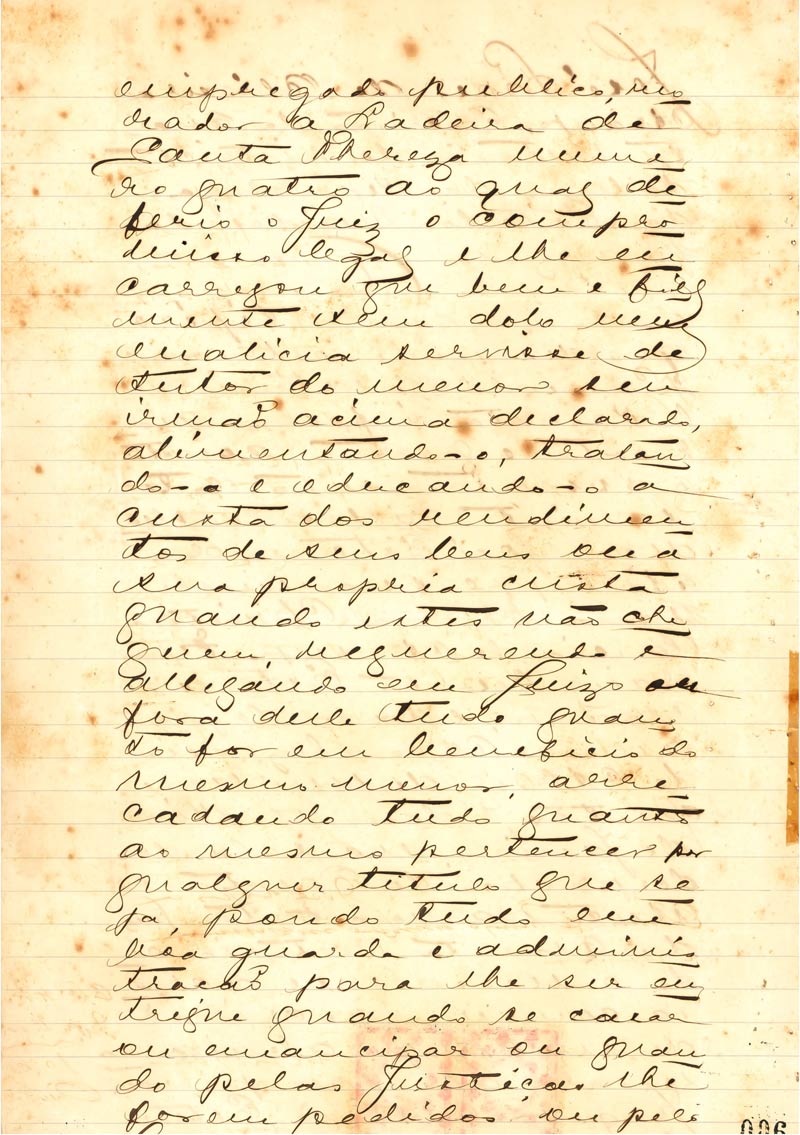 empregado publico, mo
rador a Ladeira de
Santa Thereza nume
ro quatro ao qual de
ferio o Juiz o compro
misso legal e lhe en
carregou que bem e fiel
mente sem dolo nem
malicia servisse de
tutor do menor seu
irmão acima declarado,
alimentando-o, tratan
do-o e educando-o a
custa dos rendimen
tos de seus bens ou á
sua propria custa
quando estes não che
guem, requerendo e
allegando em Juizo ou
fora delle tudo quan
to for em beneficio do
mesmo menor, arre
cadando tudo quanto
ao mesmo pertencer por
qualquer titulo que se
ja, pondo tudo em
bôa guarda e adminis
tração para lhe ser en
tregue quando se casar
ou emancipar ou quan
do pelas Justiças lhe
forem pedidos, ou pelo
006